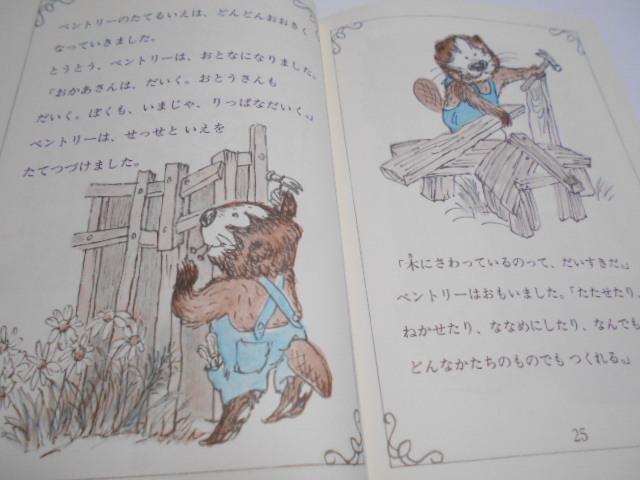 ベントリーのたてるいえは、どんどんおおきく
なっていきました。
とうとう、ベントリーは、おとなになりました。
「おかあさんは、だいく。おとうさんも
だいく。ぼくも、いまじゃ、りっぱなだいく。」
ベントリーは、せっせと いえを
たてつづけました。
「木にさわっているのって、だいすきだ。」
ベントリーはおもいました。「たたせたり、
ねかせたり、ななめにしたり、なんでも、
どんなかたちのものでも つくれる。」
25